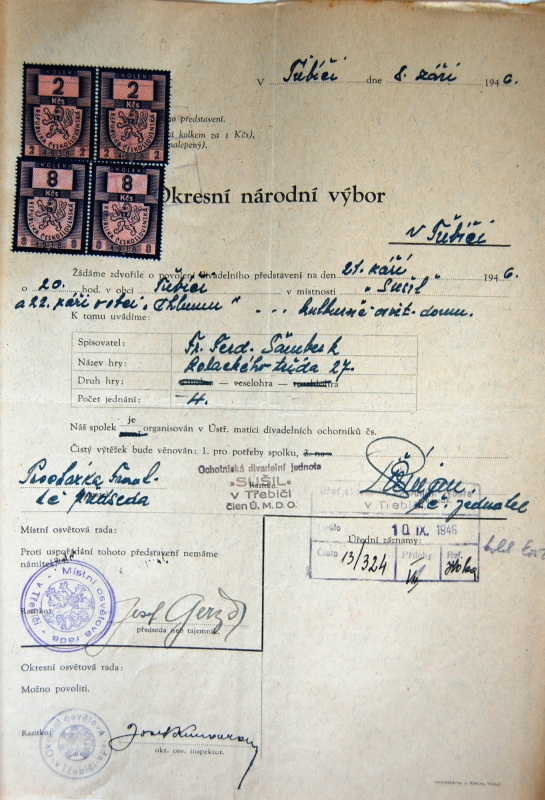 V Třebíči dne 8. září 1946.
KOLEK KOLEK
2 2
Kčs Kčs
REPUBLIKA ČESKOSLOVENSKÁ REPUBLIKA ČESKOSLOVENSKÁ
2 2 2 2
KOLEK KOLEK
8 8
Kčs Kčs
REPUBLIKA ČESKOSLOVENSKÁ REPUBLIKA ČESKOSLOVENSKÁ
8 8 8 8
představení.
kolkem za 1 Kčs),
nalepený).
Okresní národní výbor
v Třebíči
Žádáme zdvořile o povolení divadelního představení na den 21. září 1946
o 20. hod. v obci Třebíči v místnosti „Sušil"
a 22. září v obci „Chlumu" ... kulturně osvět. domu.
K tomu uvádíme:
Spisovatel: Fr. Ferd. Šamberk
Název hry: Palackého třída 27.
Druh hry: — veselohra —
Počet jednání: 4.
Náš spolek je organisován v Ústř. matici divadelních ochotníků čs.
Čistý výtěžek bude věnován: 1. pro potřeby spolku,
Ochotnická divadelní jednota
"SUŠIL"
Razítko.
v Třebíči
člen Ú.M.D.O.
t.č. předseda
t.č. jednatel
v Třebíči
Došlo 10 IX. 1946
Číslo 13/324 Přílohy Ref.
Místní osvětová rada:
Úřední záznamy:
Proti uspořádání tohoto představení nemáme
námitek
Místní osvětová rada
v Třebíči
Razítko: Josef
předseda neb tajemník.
Okresní osvětová rada:
Možno povoliti.
Razítko: Josef
okr. osv. inspektor.